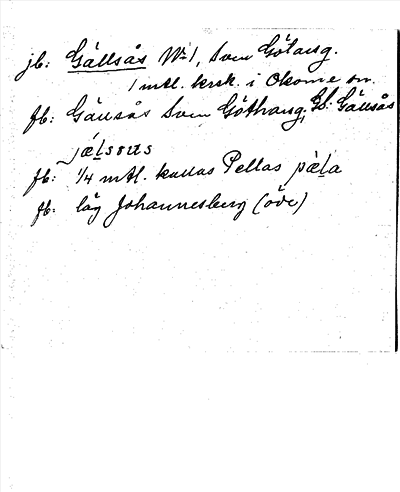 jb: Gällsås No 1, Sven Götaug.
1 mtl. krsk. i Okome sn.
fb: Gäusås Sven Göthaug; Gl. Gäusås
jælsous
fb: 1/4 mtl. kallas Pellas pæla
fb: låg Johannesberg (öde)